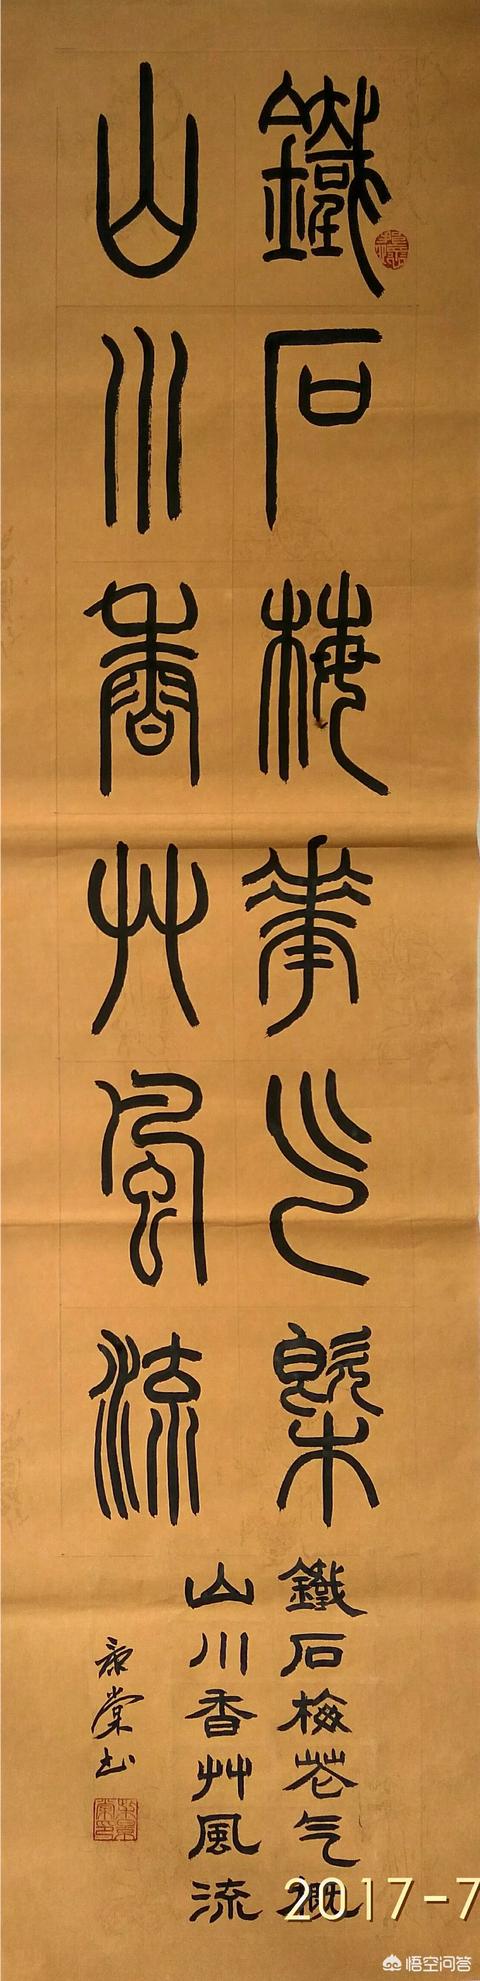 鐵石梅華气槩
山川香艸風流
鐵石梅花气概
山川香艸風流
棠书
2017-7
悟空问答